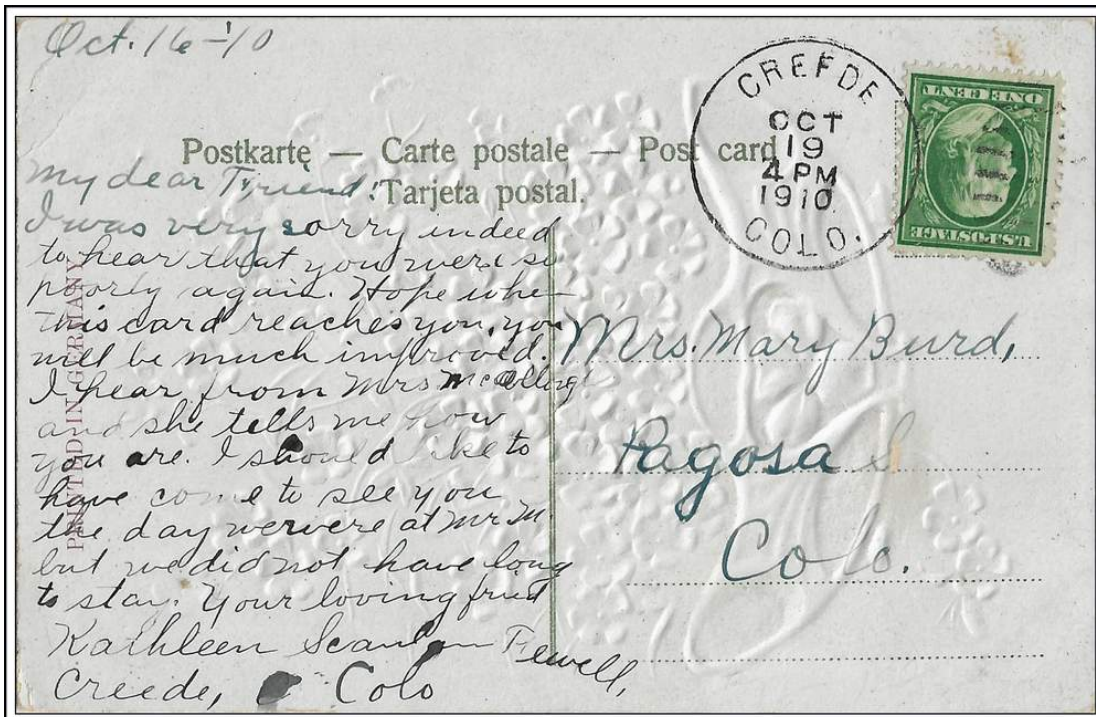 Oct. 16-'10
Postkarte — Carte postale — Post card
Tarjeta postal.
CREEDE
OCT
19
4 PM
1910
COLO.
U.S. POSTAGE
ONE CENT
PRINTED IN GERMANY
My dear Friend!
I was very sorry indeed
to hear that you were so
poorly again. Hope whe
this card reaches you, you
will be much improved.
I hear from Mrs
and she tells me how
you are. I should like to
have come to see you
the day we were at Mr M
but we did not have long
to stay. Your loving fried
Kathleen Scanlon Fewell,
Creede, Colo
Mrs. Mary Burd,
Pagosa
Colo.